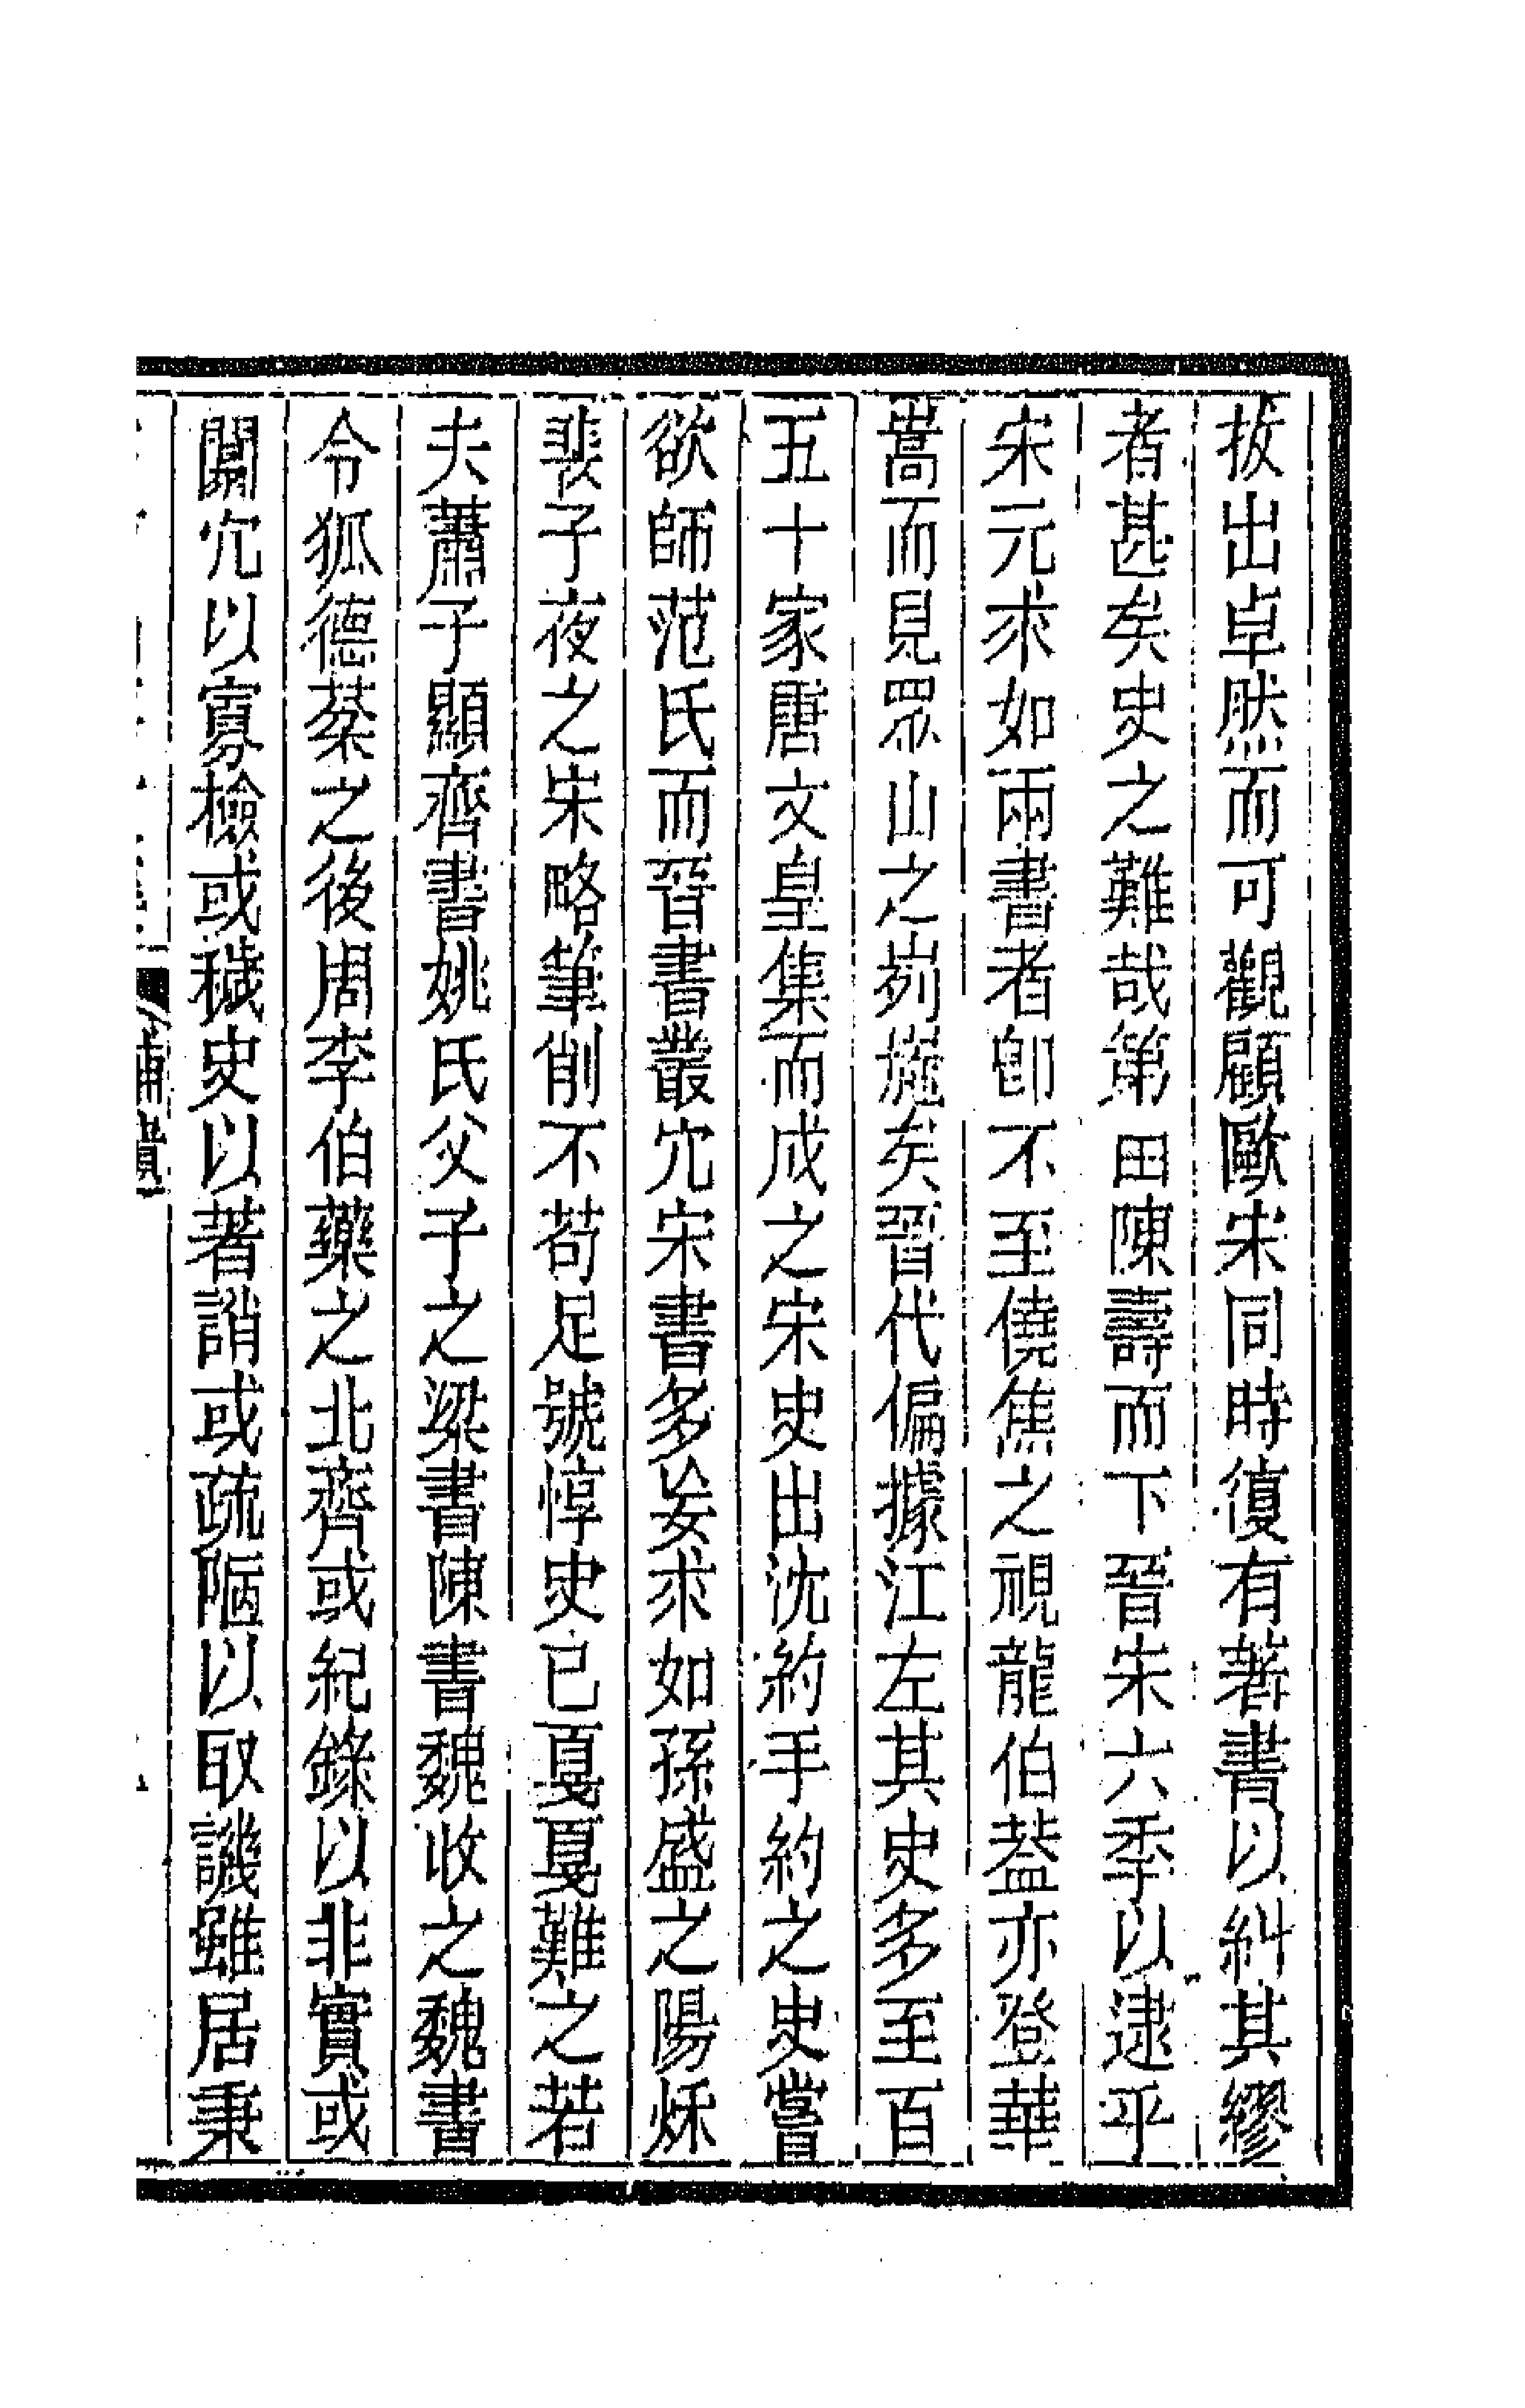 拔出卓然而可觀顧歐宋同時復有著書以糾其繆
者甚矣史之難哉第田陳壽而下晉宋六季以逮乎
宋元求如兩書者卽不至僥焦之視龍伯葢亦登華
嵩而見眾山之峛崺矣晉代偏據江左其史多至百
五十家唐文皇集而成之宋史出沈約手約之史嘗
欲師范氏而晉書叢宂宋書多妄求如孫盛之陽秌
裴子夜之宋略筆削不苟足號惇史已戛戛難之若
夫蕭子顯齊書姚氏父子之梁書陳書魏收之魏書
令狐德棻之後周李伯藥之北齊或紀錄以非實或
闒宂以寡檢或穢史以著誚或疏陋以取譏雖居秉